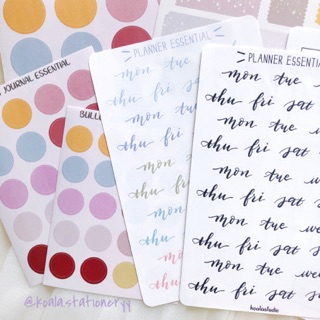 JOURNAL ESSENTIAL
BULLE
PLANNER ESSENTIAL
mon tue
thu fri
mon tue
thu fri
mon tue
thu fri
mon
thu
mon
thu
PLANNER ESSENTIAL
mon tue we
thu fri sat
mon tue we
thu fri sat
mon tue we
thu fri sat
mon tue wed
thu fri sat
mon tue
thu fri sat
koalastudio
@koala.stationeryy